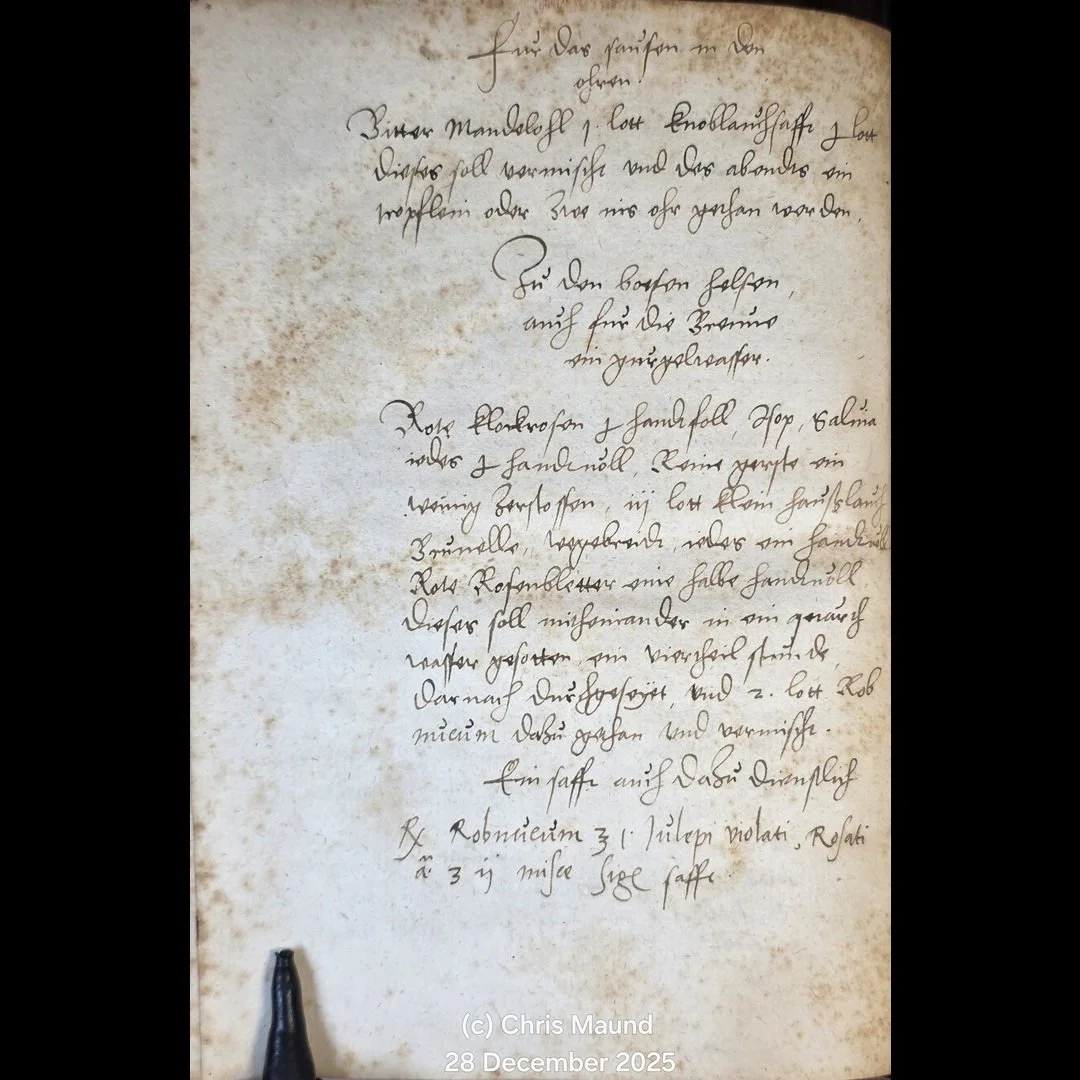 Fur das sausen in den
ohren.
Bitter Mandelohl j. lott Knoblauchsafft j lott
dieses soll vermischt und des abendts ein
tropflein oder zwe ins ohr gethan werden.
Zu den boesen helsen,
auch fur die Breune
ein gurgelwasser.
Rote klockrosen j handtfoll, Isop, Salvia
iedes j handtvoll, Reine gerste ein
wenig zerstossen, iij lott klein haußlauch
Brunelle, wegebreidt, iedes ein handtvoll
Rote Rosenbletter eine halbe handtvoll
dieses soll mitheinander in ein quarth
wasser gesotten, ein viertheil stunde,
darnach durchgeseyet, und 2. lott Rob
nucum dazu gethan und vermischt.
Ein safft auch dazu dienstlich
℞ Robnucum ℥ j. Julepi violati, Rosati
ā ℥ ij misce Sig. safft
(c) Chris Maund
28 December 2025